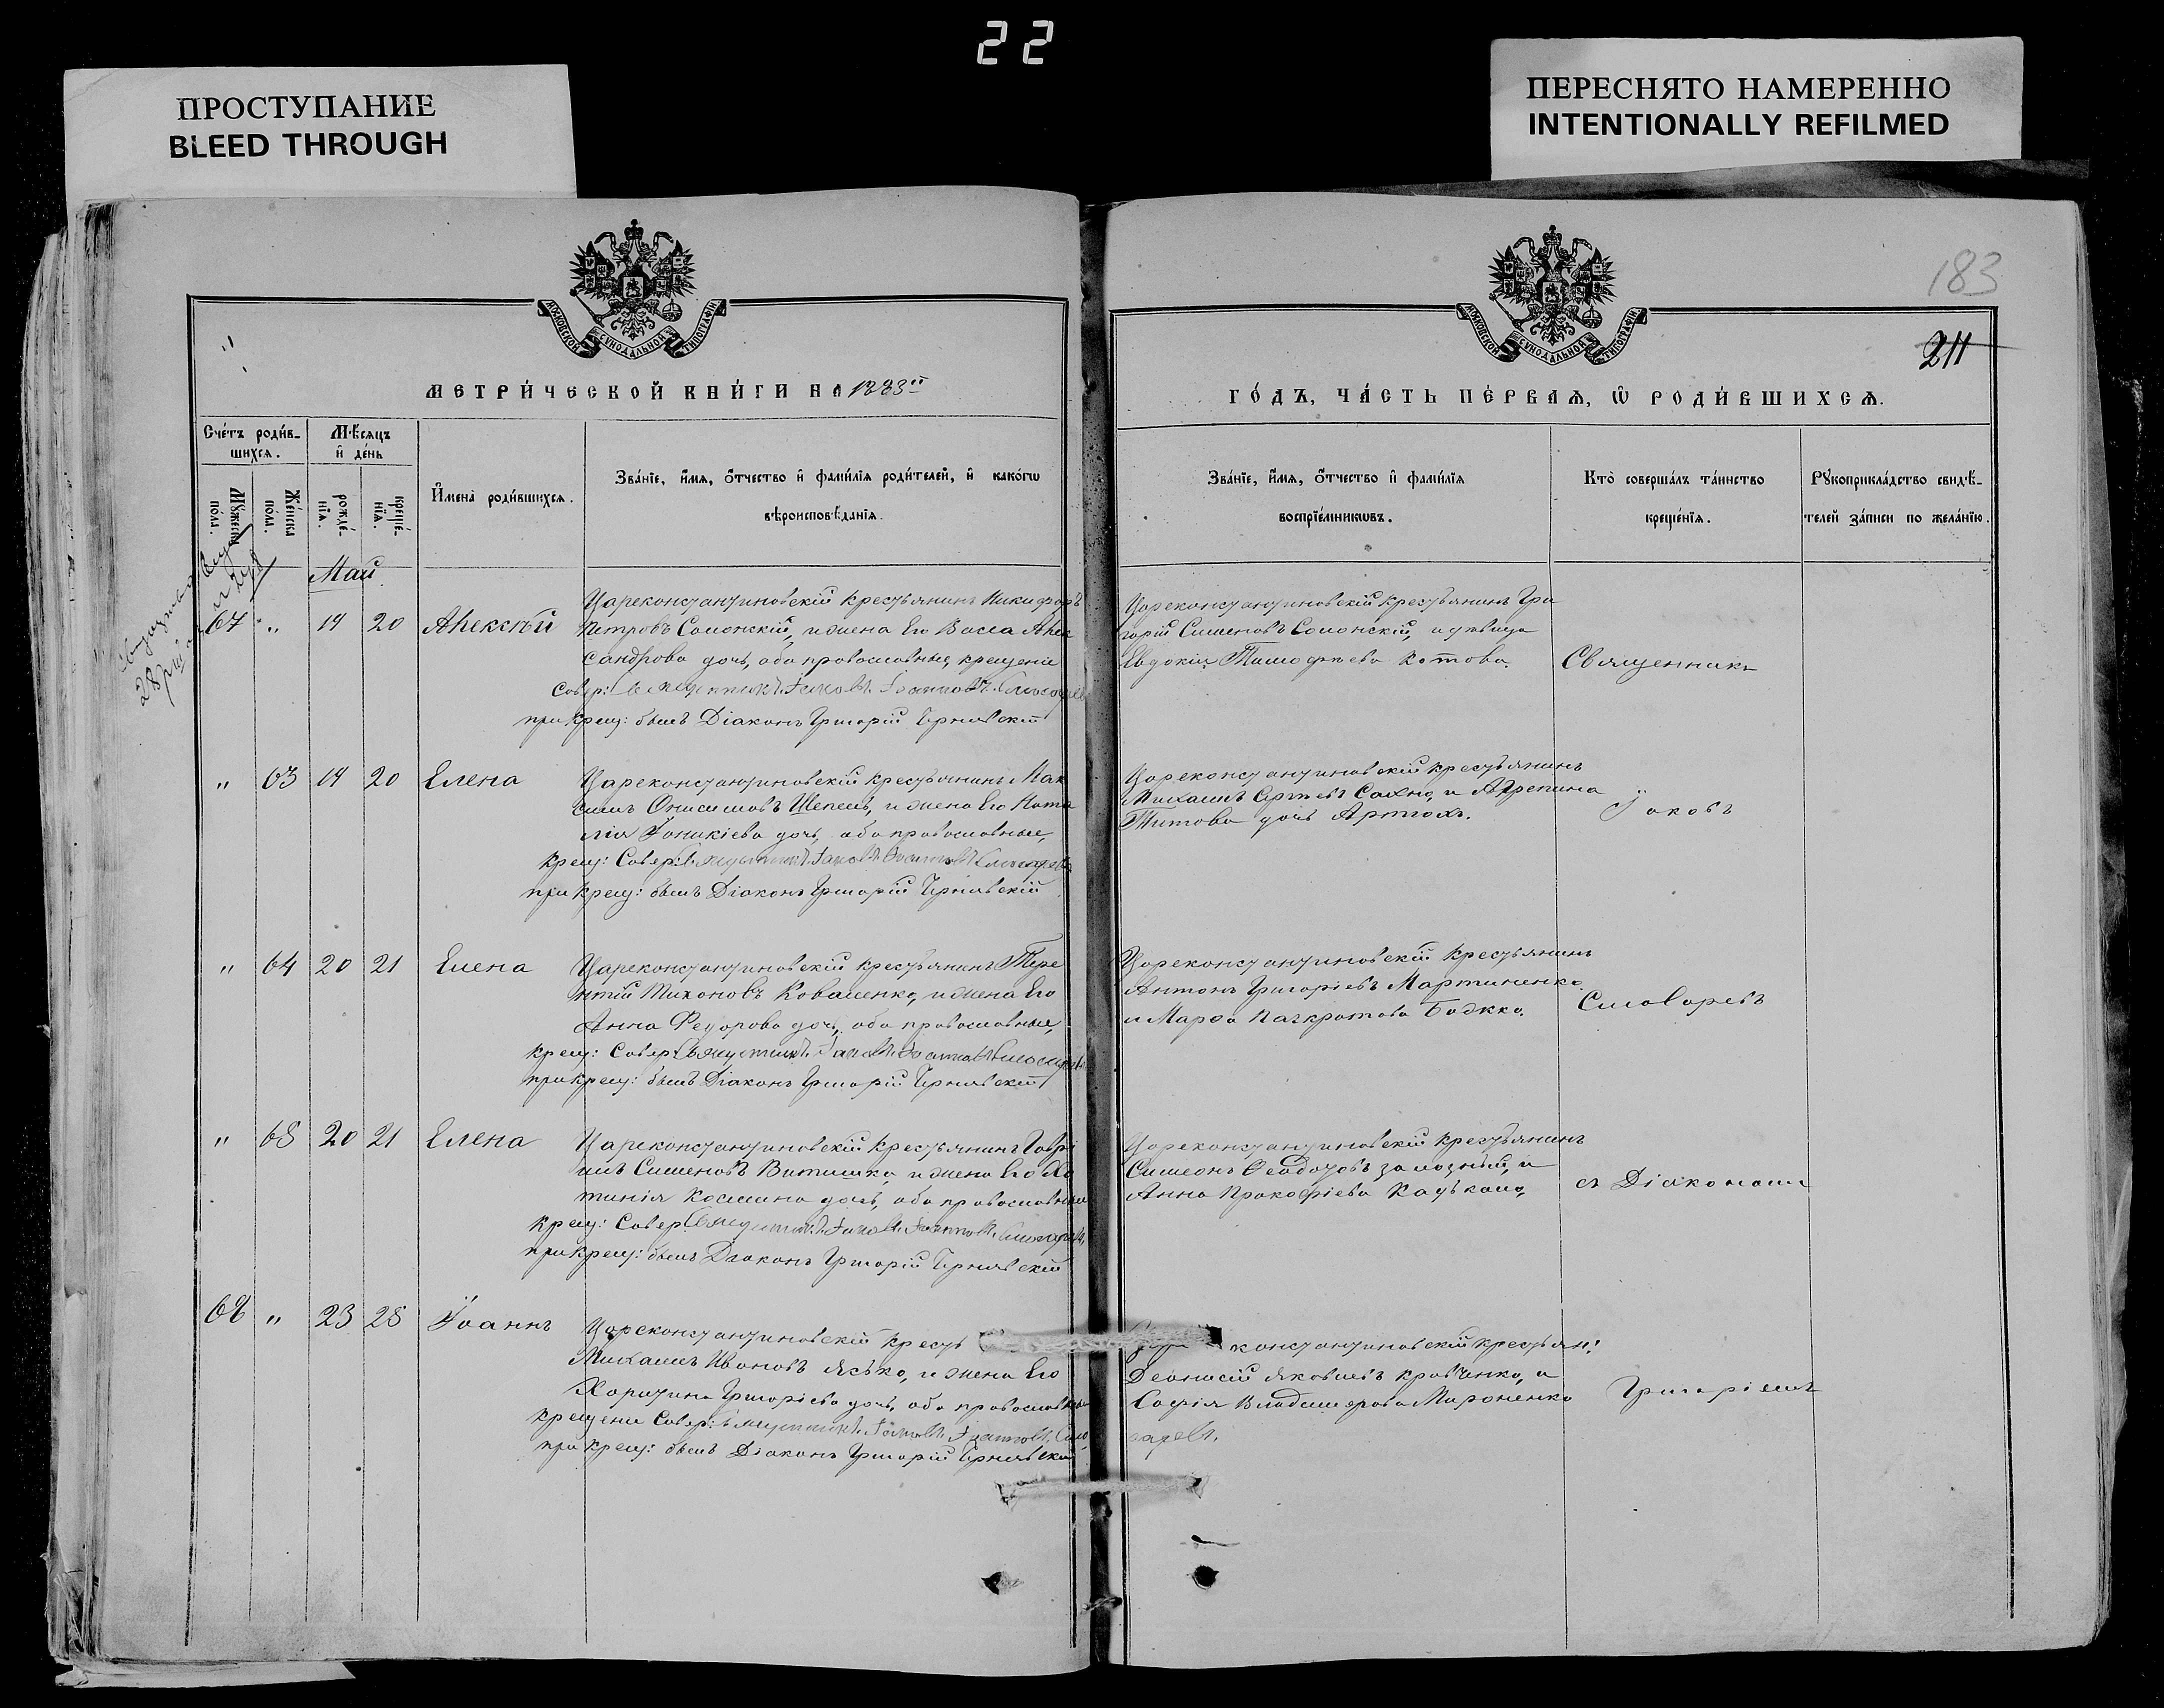 22
ПРОСТУПАНИЕ
BLEED THROUGH
ПЕРЕСНЯТО НАМЕРЕННО
INTENTIONALLY REFILMED
183
211
МОСКОВСКОЙ СѴНОДАЛЬНОЙ ТИПОГРАФІИ
МОСКОВСКОЙ СѴНОДАЛЬНОЙ ТИПОГРАФІИ
МЕТРИ́ЧЕСКОЙ КНИ́ГИ НА 1883й
ГО́ДЪ, ЧА́СТЬ ПЕ́РВАѦ, Ѿ РОДИ́ВШИХСѦ.
Сче́тъ роди́в-
шихсѧ.
Мѣ́сѧцъ
и҆ де́нь
Мꙋ́жеска
по́ла.
Же́нска
пола.
рожде́-
нїѧ.
креще́-
нїѧ.
И҆мена̀ роди́вшихсѧ.
Зва́нїе, и҆́мѧ, ѻ҆́тчество и҆ фамѝлїѧ роди́телей, и҆ како́гѡ
вѣроисповѣ́данїѧ.
Зва́нїе, и҆́мѧ, ѻ҆́тчество и҆ фамѝлїѧ
воспрїе́мникѡвъ.
Кто̀ соверша́лъ та́инство
креще́нїѧ.
Рꙋкоприкла́дство свидѣ́-
телей за́писи по жела́нїю.
Май
67 " 19 20 Алексѣй
Цареконстантиновскій крестьянинъ Никифоръ
Петровъ Солонскій, и жена Его Васса Алек
сандрова дочь, оба православные, крещеніе
Совер: Священникъ Іаковъ Іоанновъ Слюсарев
при крещ: былъ Діаконъ Григорій Чернявскій
Цареконстантиновскій крестьянинъ Гри
горій Сименовъ Солонскій, и дѣвица
Евдокія Тимофѣева Котова.
Священникъ
" 63 19 20 Елена
Цареконстантиновскій крестьянинъ Мак
симъ Онисимовъ Шепель, и жена Его Ната
лія Іоникіева дочь, оба православные,
крещ: Совер: Священникъ Іаковъ Іоанновъ Слюсаревъ
при крещ: былъ Діаконъ Григорій Чернявскій
Цареконстантиновскій крестьянинъ
Михаилъ Сергѣевъ Сахно, и Агрепина
Титова дочь Артюхъ.
Іаковъ
" 64 20 21 Елена
Цареконстантиновскій крестьянинъ Тере
нтій Тихоновъ Коваленко, и жена Его
Анна Федорова дочь, оба православные,
крещ: Совер: Священникъ Іаковъ Іоанновъ Слюсаревъ
при крещ: былъ Діаконъ Григорій Чернявскій
Цареконстантиновскій крестьянинъ
Антонъ Григоріевъ Мартиненко,
и Марѳа Панкратова Бодкко.
Слюсаревъ
" 65 20 21 Елена
Цареконстантиновскій крестьянинъ Гаврі
илъ Сименовъ Витишко, и жена Его Хо
тинія Космина дочь, оба православные
крещ: Совер: Священникъ Іаковъ Іоанновъ Слюсаревъ,
при крещ: былъ Діаконъ Григорій Чернявскій
Цареконстантиновскій крестьянинъ
Симеонъ Ѳеодотовъ Залозный, и
Анна Прокофіева
съ Діакономъ
68 " 23 28 Іоаннъ
Цареконстантиновскій кресть
Михаилъ Ивановъ Ясько, и жена Его
Харитина Григоріева дочь, оба православные
крещеніе Совер: Священникъ Іаковъ Іоанновъ Слю
саревъ,
при крещ: былъ Діаконъ Григорій Чернявскій
константиновскій крестьян:
Деонисій Яковлевъ Кравченко, и
Софія Владимерова Мироненко
Григоріемъ